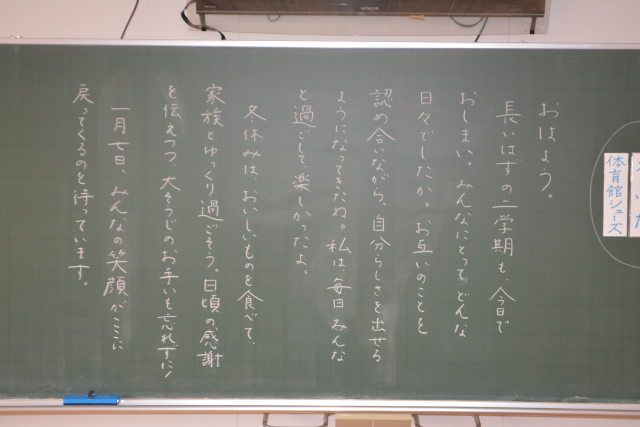 おはよう。
長いはずの二学期も、今日で
おしまい。みんなにとってどんな
日々でしたか。お互いのことを
認め合いながら、自分らしさを出せる
ようになってきたね。私は、毎日みんな
と過ごして楽しかったよ。
冬休みは、おいしいものを食べて、
家族とゆっくり過ごそう。日頃の感謝
を伝えつつ、大そうじのお手いも忘れずに!
一月七日、みんなの笑顔がここに
戻ってくるのを待っています。
体育館シューズ
HITACHI